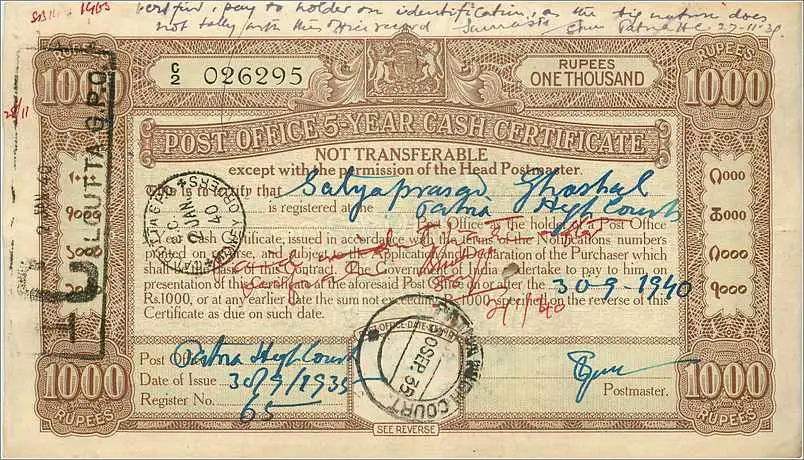 Certified, pay to holder on identification, as the signature does
not tally with this office record
Patna H.C. 27-11-39
1000
RUPEES
C/2 026295
RUPEES
ONE THOUSAND
RUPEES
1000
POST OFFICE 5-YEAR CASH CERTIFICATE
NOT TRANSFERABLE
except with the permission of the Head Postmaster.
This is to certify that Satyaprasad Ghoshal
is registered at the Patna High Court
Post Office as the holder of a Post Office
Cash Certificate, issued in accordance with the terms of the Notifications numbers
printed on reverse, and subject to the Application and Declaration of the Purchaser which
shall be the basis of this Contract. The Government of India undertake to pay to him, on
presentation of this certificate at the aforesaid Post Office on or after the 30-9-1940
Rs.1000, or at any earlier date the sum not exceeding Rs.1000 specified on the reverse of this
Certificate as due on such date.
2/1/40
CALCUTTA G.P.O
2 JAN 40
2 JAN
40
PATNA HIGH COURT
SEP. 35
Post Office Patna High Court
Date of Issue 30/9/1935
Register No. 65
Postmaster.
1000
RUPEES
SEE REVERSE
1000
RUPEES